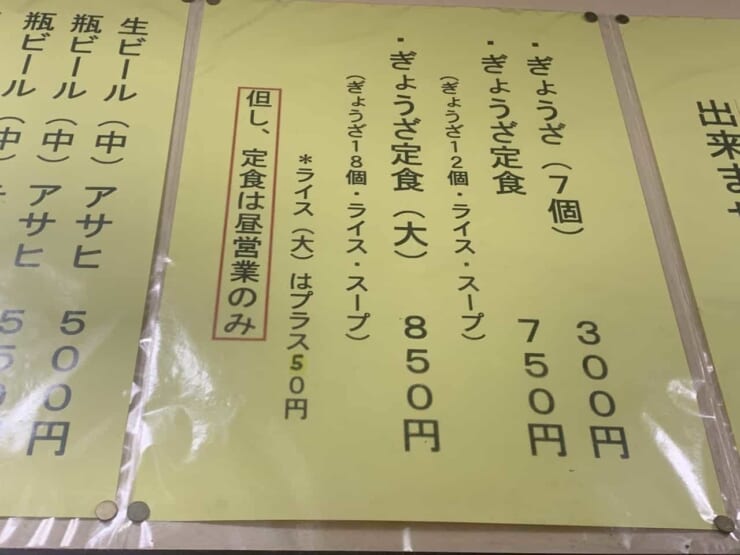 出来ま
・ぎょうざ(7個) 300円
・ぎょうざ定食 750円
(ぎょうざ12個・ライス・スープ)
・ぎょうざ定食(大) 850円
(ぎょうざ18個・ライス・スープ)
*ライス(大)はプラス50円
但し、定食は昼営業のみ
生ビール(中)アサヒ 500円
瓶ビール(中)アサヒ 550円
瓶ビール(中)